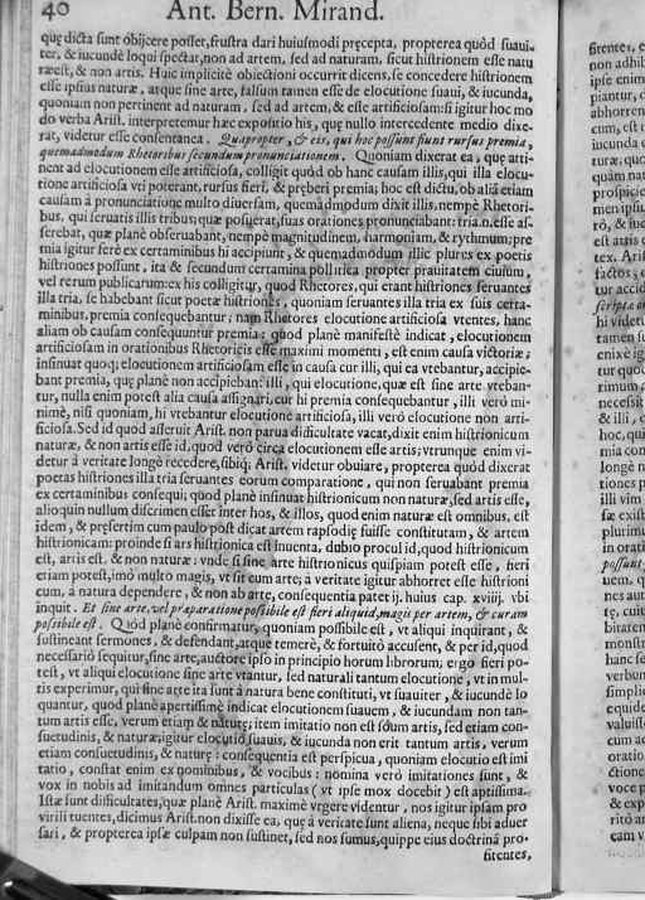 40 Ant. Bern. Mirand.
quę dicta sunt obijcere posset, frustra dari huiusmodi pręcepta, propterea quòd suaui-
ter, & iucundè loqui spectat, non ad artem, sed ad naturam, sicut histrionem esse natu
ræ est, & non artis. Huic implicitè obiectioni occurrit dicens, se concedere histrionem
esse ipsius naturæ, atque sine arte, falsum tamen esse de elocutione suaui, & iucunda,
quoniam non pertinent ad naturam, sed ad artem, & esse artificiosam: si igitur hoc mo
do verba Arist. interpretemur hæc expositio his, quę nullo intercedente medio dixe-
rat, videtur esse consentanea. Quapropter, & eis, qui hoc possunt fiunt rursus premia,
quemadmodum Rhetoribus secundum pronunciationem. Quoniam dixerat ea, quę arti-
nent ad elocutionem esse artificiosa, colligit quòd ob hanc causam illis, qui illa elocu-
tione artificiosa vti poterant, rursus fieri, & pręberi premia; hoc est dictu, ob aliā etiam
causam à pronunciatione multo diuersam, quemàdmodum dixit illis, nempè Rhetori-
bus, qui seruatis illis tribus, quæ posuerat, suas orationes pronunciabant: tria.n.esse as-
serebat, quæ planè obseruabant, nempè magnitudinem, harmoniam, & rythmum; pre
mia igitur ferè ex certaminibus hi accipiunt, & quemadmodum illic plures ex poetis
histriones possunt, ita & secundum certamina pollitica propter prauitatem ciuium,
vel rerum publicarum: ex his colligitur, quod Rhetores, qui erant histriones seruantes
illa tria, se habebant sicut poetæ histriones, quoniam seruantes illa tria ex suis certa-
minibus, premia consequebantur; nam Rhetores elocutione artificiosa vtentes, hanc
aliam ob causam consequuntur premia: quod planè manifestè indicat, elocutionem
artificiosam in orationibus Rhetoricis esse maximi momenti, est enim causa victoriæ;
insinuat quoq; elocutionem artificiosam esse in causa cur illi, qui ea vtebantur, accipie-
bant premia, quę planè non accipiebant illi, qui elocutione, quæ est sine arte vteban-
tur, nulla enim potest alia causa assignari, cur hi premia consequebantur, illi verò mi-
nimè, nisi quoniam, hi vtebantur elocutione artificiosa, illi verò elocutione non arti-
ficiosa. Sed id quod asseruit Arist. non parua difficultate vacat, dixit enim histrionicum
naturæ, & non artis esse id, quod verò circa elocutionem esse artis; vtrunque enim vi-
detur à veritate longè recedere, sibiq; Arist. videtur obuiare, propterea quòd dixerat
poetas histriones illa tria seruantes eorum comparatione, qui non seruabant premia
ex certaminibus consequi; quod planè insinuat histrionicum non naturæ, sed artis esse,
alioquin nullum discrimen esset inter hos, & illos, quod enim naturæ est omnibus, est
idem, & pręsertim cum paulo post dicat artem rapsodię fuisse constitutam, & artem
histrionicam: proinde si ars histrionica est inuenta, dubio procul id, quod histrionicum
est, artis est, & non naturæ: vnde si sine arte histrionicus quispiam potest esse, fieri
etiam potest, imò multo magis, vt sit cum arte; à veritate igitur abhorret esse histrioni
cum, à natura dependere, & non ab arte, consequentia patet ij. huius cap. xviiij. vbi
inquit. Et sine arte, vel præparatione possibile est fieri aliquid, magis per artem, & curam
possibile est. Quòd planè confirmatur, quoniam possibile est, vt aliqui inquirant, &
sustineant sermones, & defendant, atque temerè, & fortuitò accusent, & per id, quod
necessariò sequitur, sine arte, auctore ipso in principio horum librorum; ergo fieri po-
test, vt aliqui elocutione sine arte vtantur, sed naturali tantum elocutione, vt in mul-
tis experimur, qui sine arte ita sunt à natura bene constituti, vt suauiter, & iucundè lo
quantur, quod planè apertissimè indicat elocutionem suauem, & iucundam non tan-
tum artis esse, verum etiam & naturę; item imitatio non est solum artis, sed etiam con-
suetudinis, & naturæ, igitur elocutio suauis, & iucunda non erit tantum artis, verum
etiam consuetudinis, & naturę: consequentia est perspicua, quoniam elocutio est imi
tatio, constat enim ex nominibus, & vocibus: nomina verò imitationes sunt, &
vox in nobis ad imitandum omnes particulas (vt ipse mox docebit) est aptissima.
Istæ sunt difficultates, quæ planè Arist. maximè vrgere videntur, nos igitur ipsam pro
virili tuentes, dicimus Arist. non dixisse ea, quę à veritate sunt aliena, neque sibi aduer
sari, & propterea ipsæ culpam non sustinet, sed nos sumus, quippe eius doctrinā pro-
fitentes,